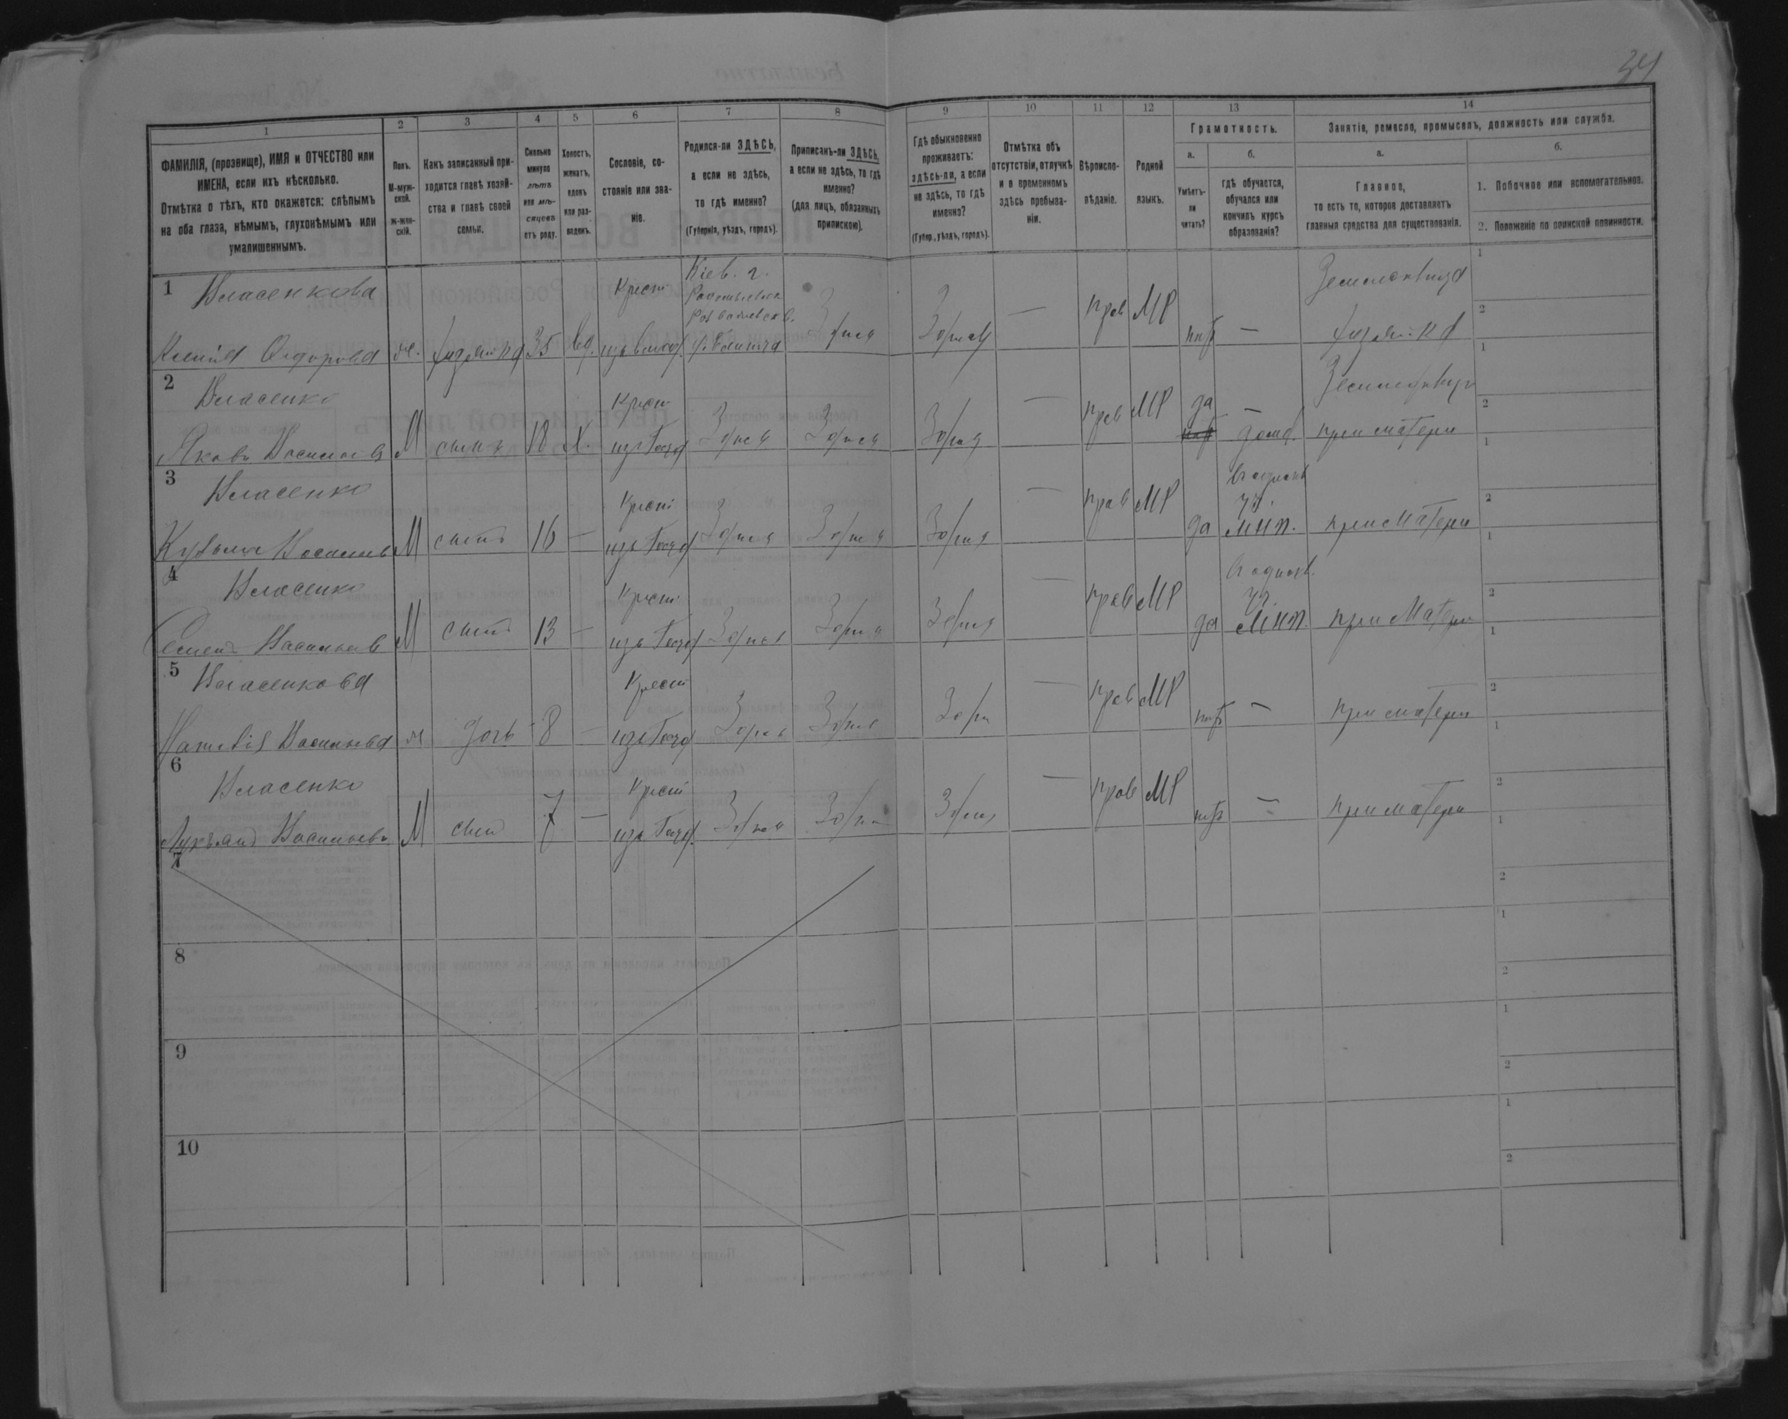 34
1
2
3
4
5
6
7
8
9
10
11
12
13
14
ФАМИЛІЯ, (прозвище), ИМЯ и ОТЧЕСТВО или
ИМЕНА, если ихъ нѣсколько.
Отмѣтка о тѣхъ, кто окажется: слѣпымъ
на оба глаза, нѣмымъ, глухонѣмымъ или
умалишеннымъ.
Полъ.
М-муж-
ской.
ж-жен-
скій.
Какъ записанный при-
ходится главѣ хозяй-
ства и главѣ своей
семьи.
Сколько
минуло
лѣтъ
или мѣ-
сяцевъ
отъ роду.
Холостъ,
женатъ,
вдовъ
или раз-
веденъ.
Сословіе, со-
стояніе или зва-
ніе.
Родился-ли ЗДѢСЬ,
а если не здѣсь,
то гдѣ именно?
(Губернія, уѣздъ, городъ).
Приписанъ-ли ЗДѢСЬ,
а если не здѣсь, то гдѣ
именно?
(для лицъ, обязанныхъ
припискою).
Гдѣ обыкновенно
проживаетъ:
здѣсь-ли, а если
не здѣсь, то гдѣ
именно?
(Губер., уѣздъ, городъ).
Отмѣтка объ
отсутствіи, отлучкѣ
и о временномъ
здѣсь пребыва-
ніи.
Вѣроиспо-
вѣданіе.
Родной
языкъ.
Грамотность.
а.
Умѣетъ-
ли
читать?
б.
гдѣ обучается,
обучался или
кончилъ курсъ
образованія?
Занятіе, ремесло, промыселъ, должность или служба.
а.
Главное,
то есть то, которое доставляетъ
главныя средства для существованія.
б.
1. Побочное или вспомогательное.
2. Положеніе по воинской повинности.
1 Власенкова
Ксенія Сидорова ж. хозяйка 35 вд.
Крест
Кіев. г.
здѣсь здѣсь — прав МР нѣтъ —
хозяйка
2 Власенко
Яковъ Васильевъ М сынъ 18 х.
Крест
здѣсь здѣсь здѣсь — прав МР да
нѣтъ дома при матери
3 Власенко
Кузьма Васильевъ М сынъ 16 —
Крест
здѣсь здѣсь здѣсь — прав МР да
уч.
мнп. при матери
4 Власенко
Семенъ Васильевъ М сынъ 13 —
Крест
здѣсь здѣсь здѣсь — прав МР да
уч.
мнп при матери
5 Власенкова
Наталія Васильева ж дочь 8 —
Крест
здѣсь здѣсь здѣсь — прав МР нѣтъ — при матери
6 Власенко
Лукьянъ Васильевъ М сынъ 7 —
Крест
здѣсь здѣсь здѣсь — прав МР нѣтъ — при матери
7
8
9
10